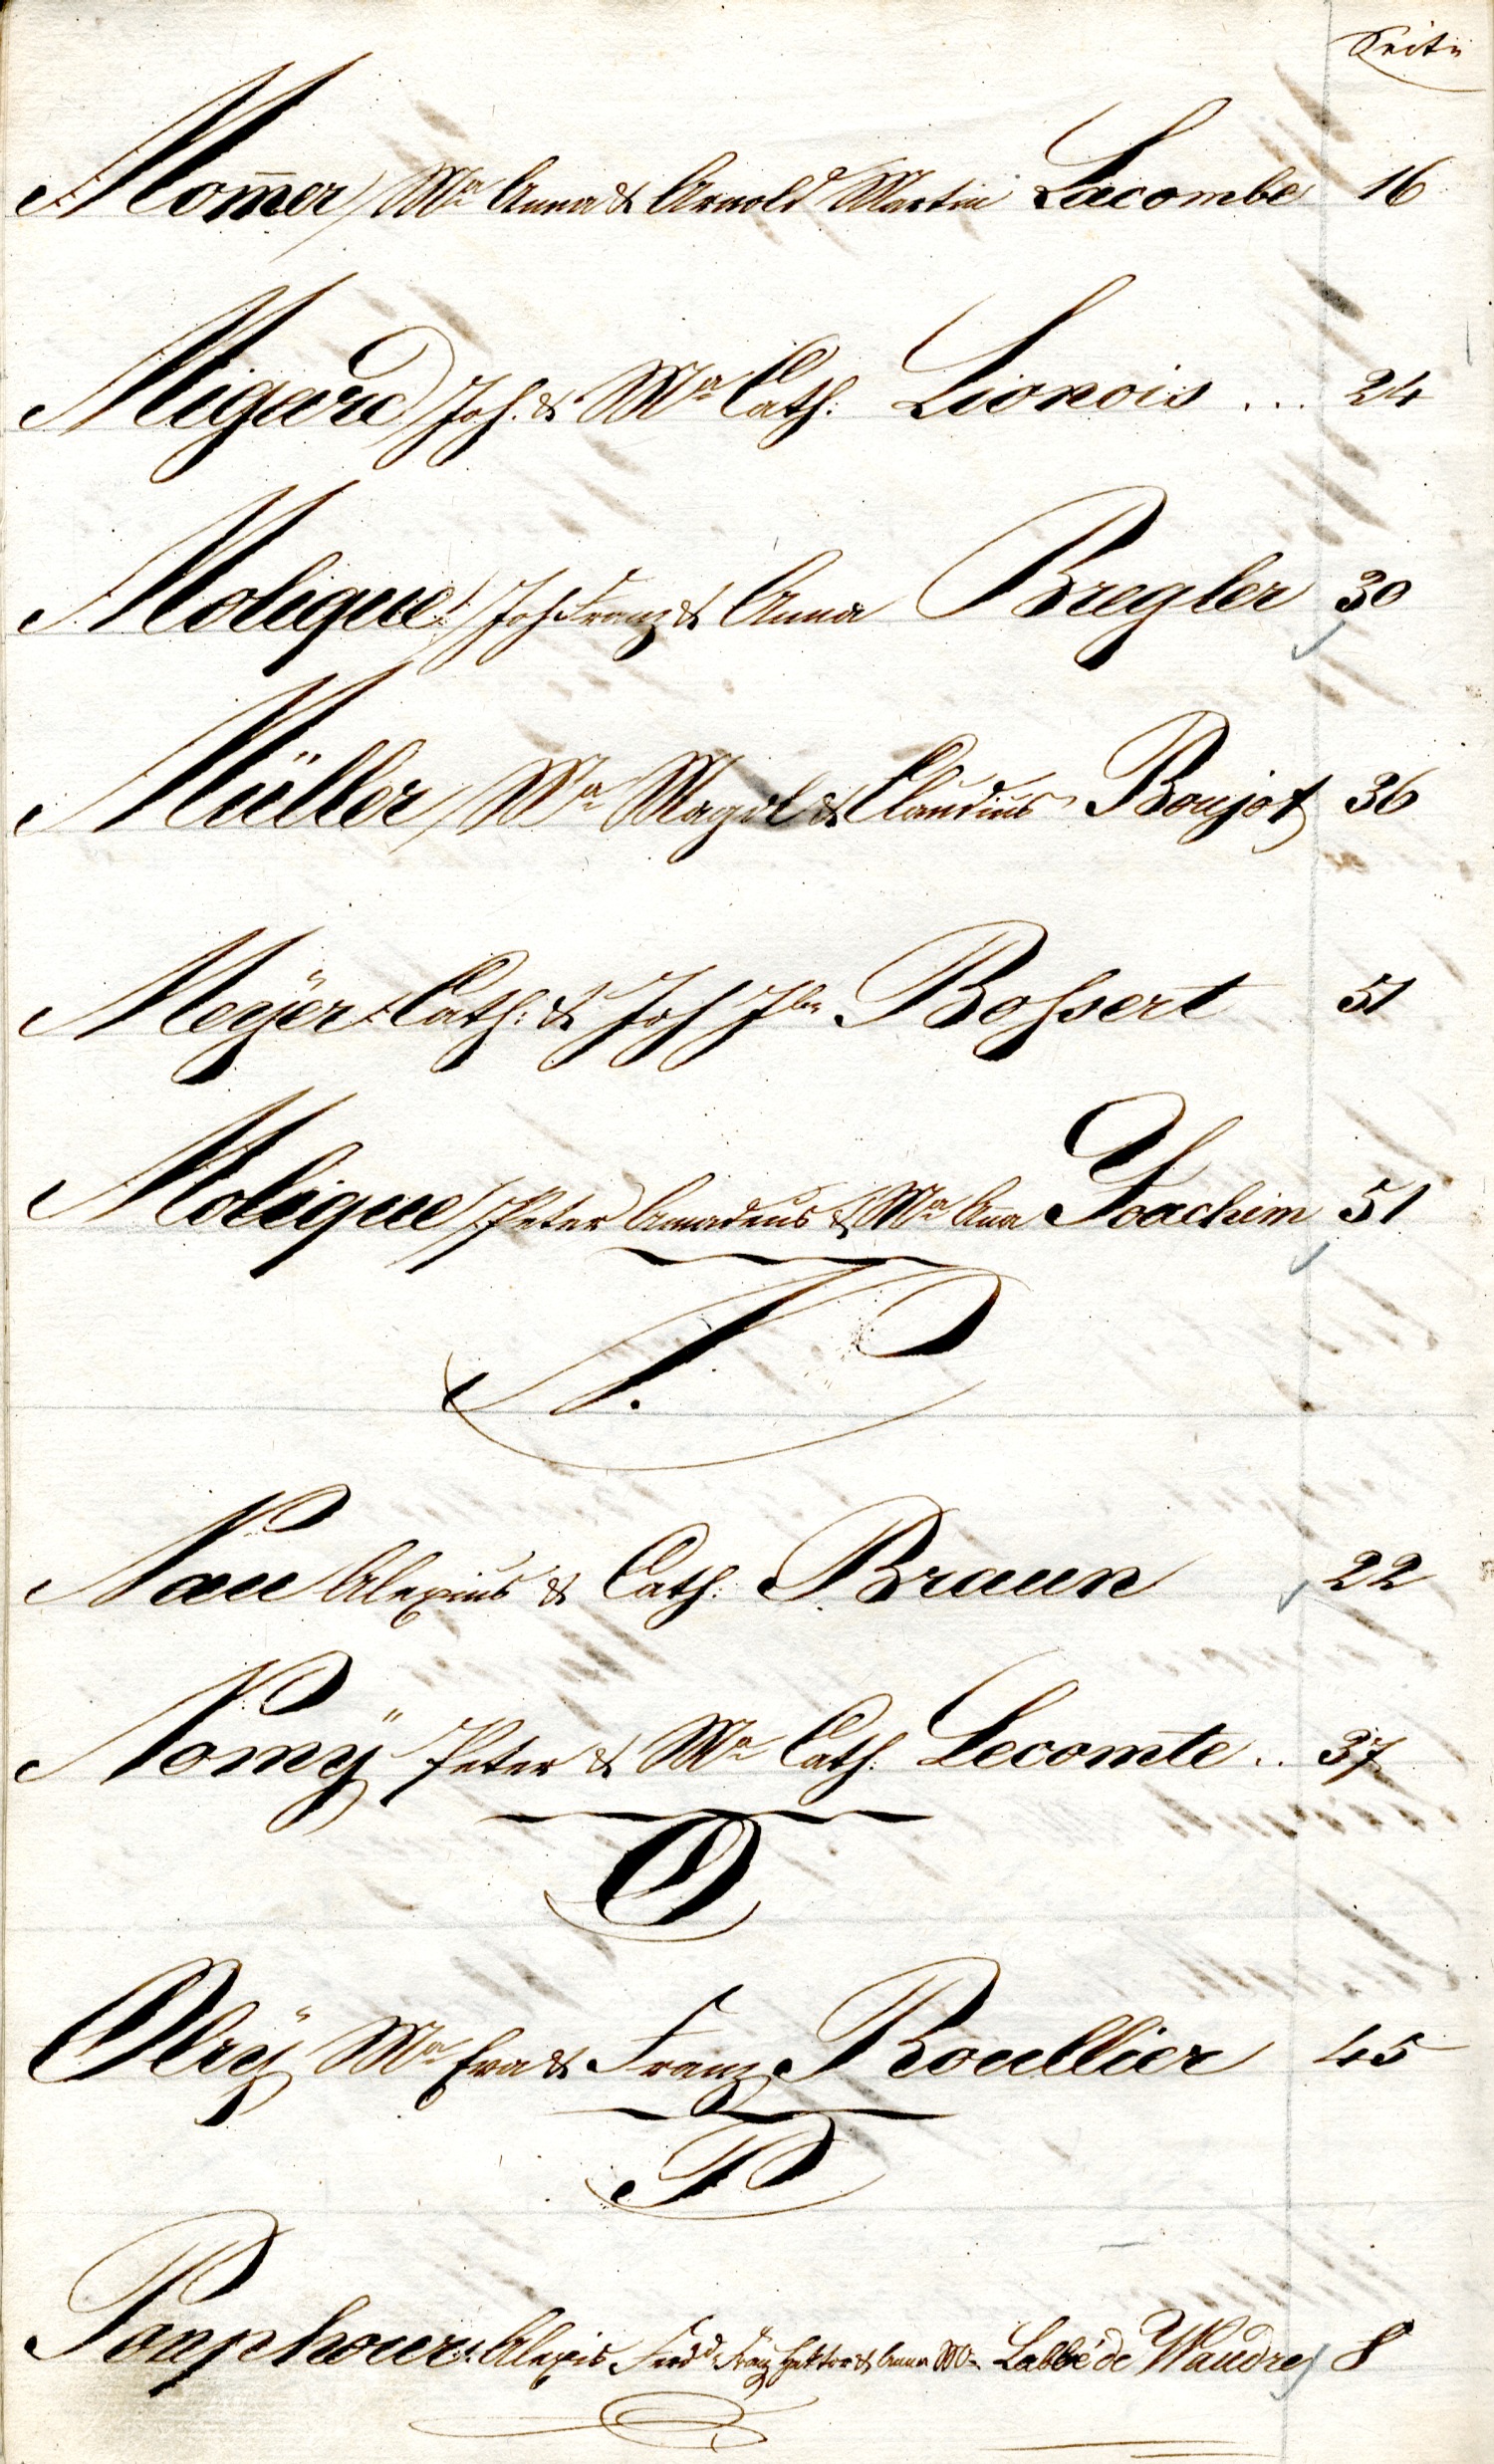 Seite
Mom̄er Mª Anna & Arnold Martin Lacombe 16
Migard Joh. & Mª Cath: Lionois ... 24
Molique Joh Franz & Anna Bregler 30
Müller Mª Magdl & Claudius Boujot 36
Meÿer Cath: & Joh Jbn Bossert 51
Molique Peter Amadeus & Mª Ana Joachim 51
N.
Nau Alexius & Cath: Braun 22
Nomÿ Peter & Mª Cath: Lecomte .. 37
O
Olrÿ Mª Eva & Franz Roullier 45
P
Ponphour Alexis Ferdd Franz Hektor & Anna Mª Labbé de Waudre 8